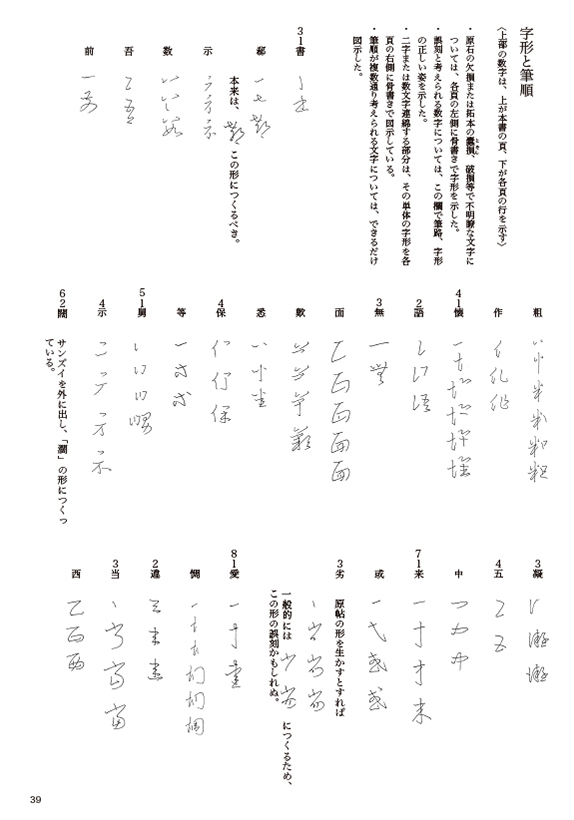 字形と筆順
〈上部の数字は、上が本書の頁、下が各頁の行を示す〉
・原石の欠損または拓本の蠹損、破損等で不明瞭な文字に
ついては、各頁の左側に骨書きで字形を示した。
・誤刻と考えられる数字については、この欄で筆路、字形
の正しい姿を示した。
・二字または数文字連綿する部分は、その単体の字形を各
頁の右側に骨書きで図示している。
・筆順が複数通り考えられる文字については、できるだけ
図示した。
31書
鄰
本来は、
この形につくるべき。
示
数
吾
前
粗
作
41懐
2語
3無
面
歎
悉
4保
等
51舅
4示
62闊
サンズイを外に出し、「濶」の形につくっ
ている。
3凝
4五
中
71来
或
3劣
原帖の形を生かすとすれば
一般的には
につくるため、
この形の誤刻かもしれぬ。
81愛
惆
2違
3当
西
39